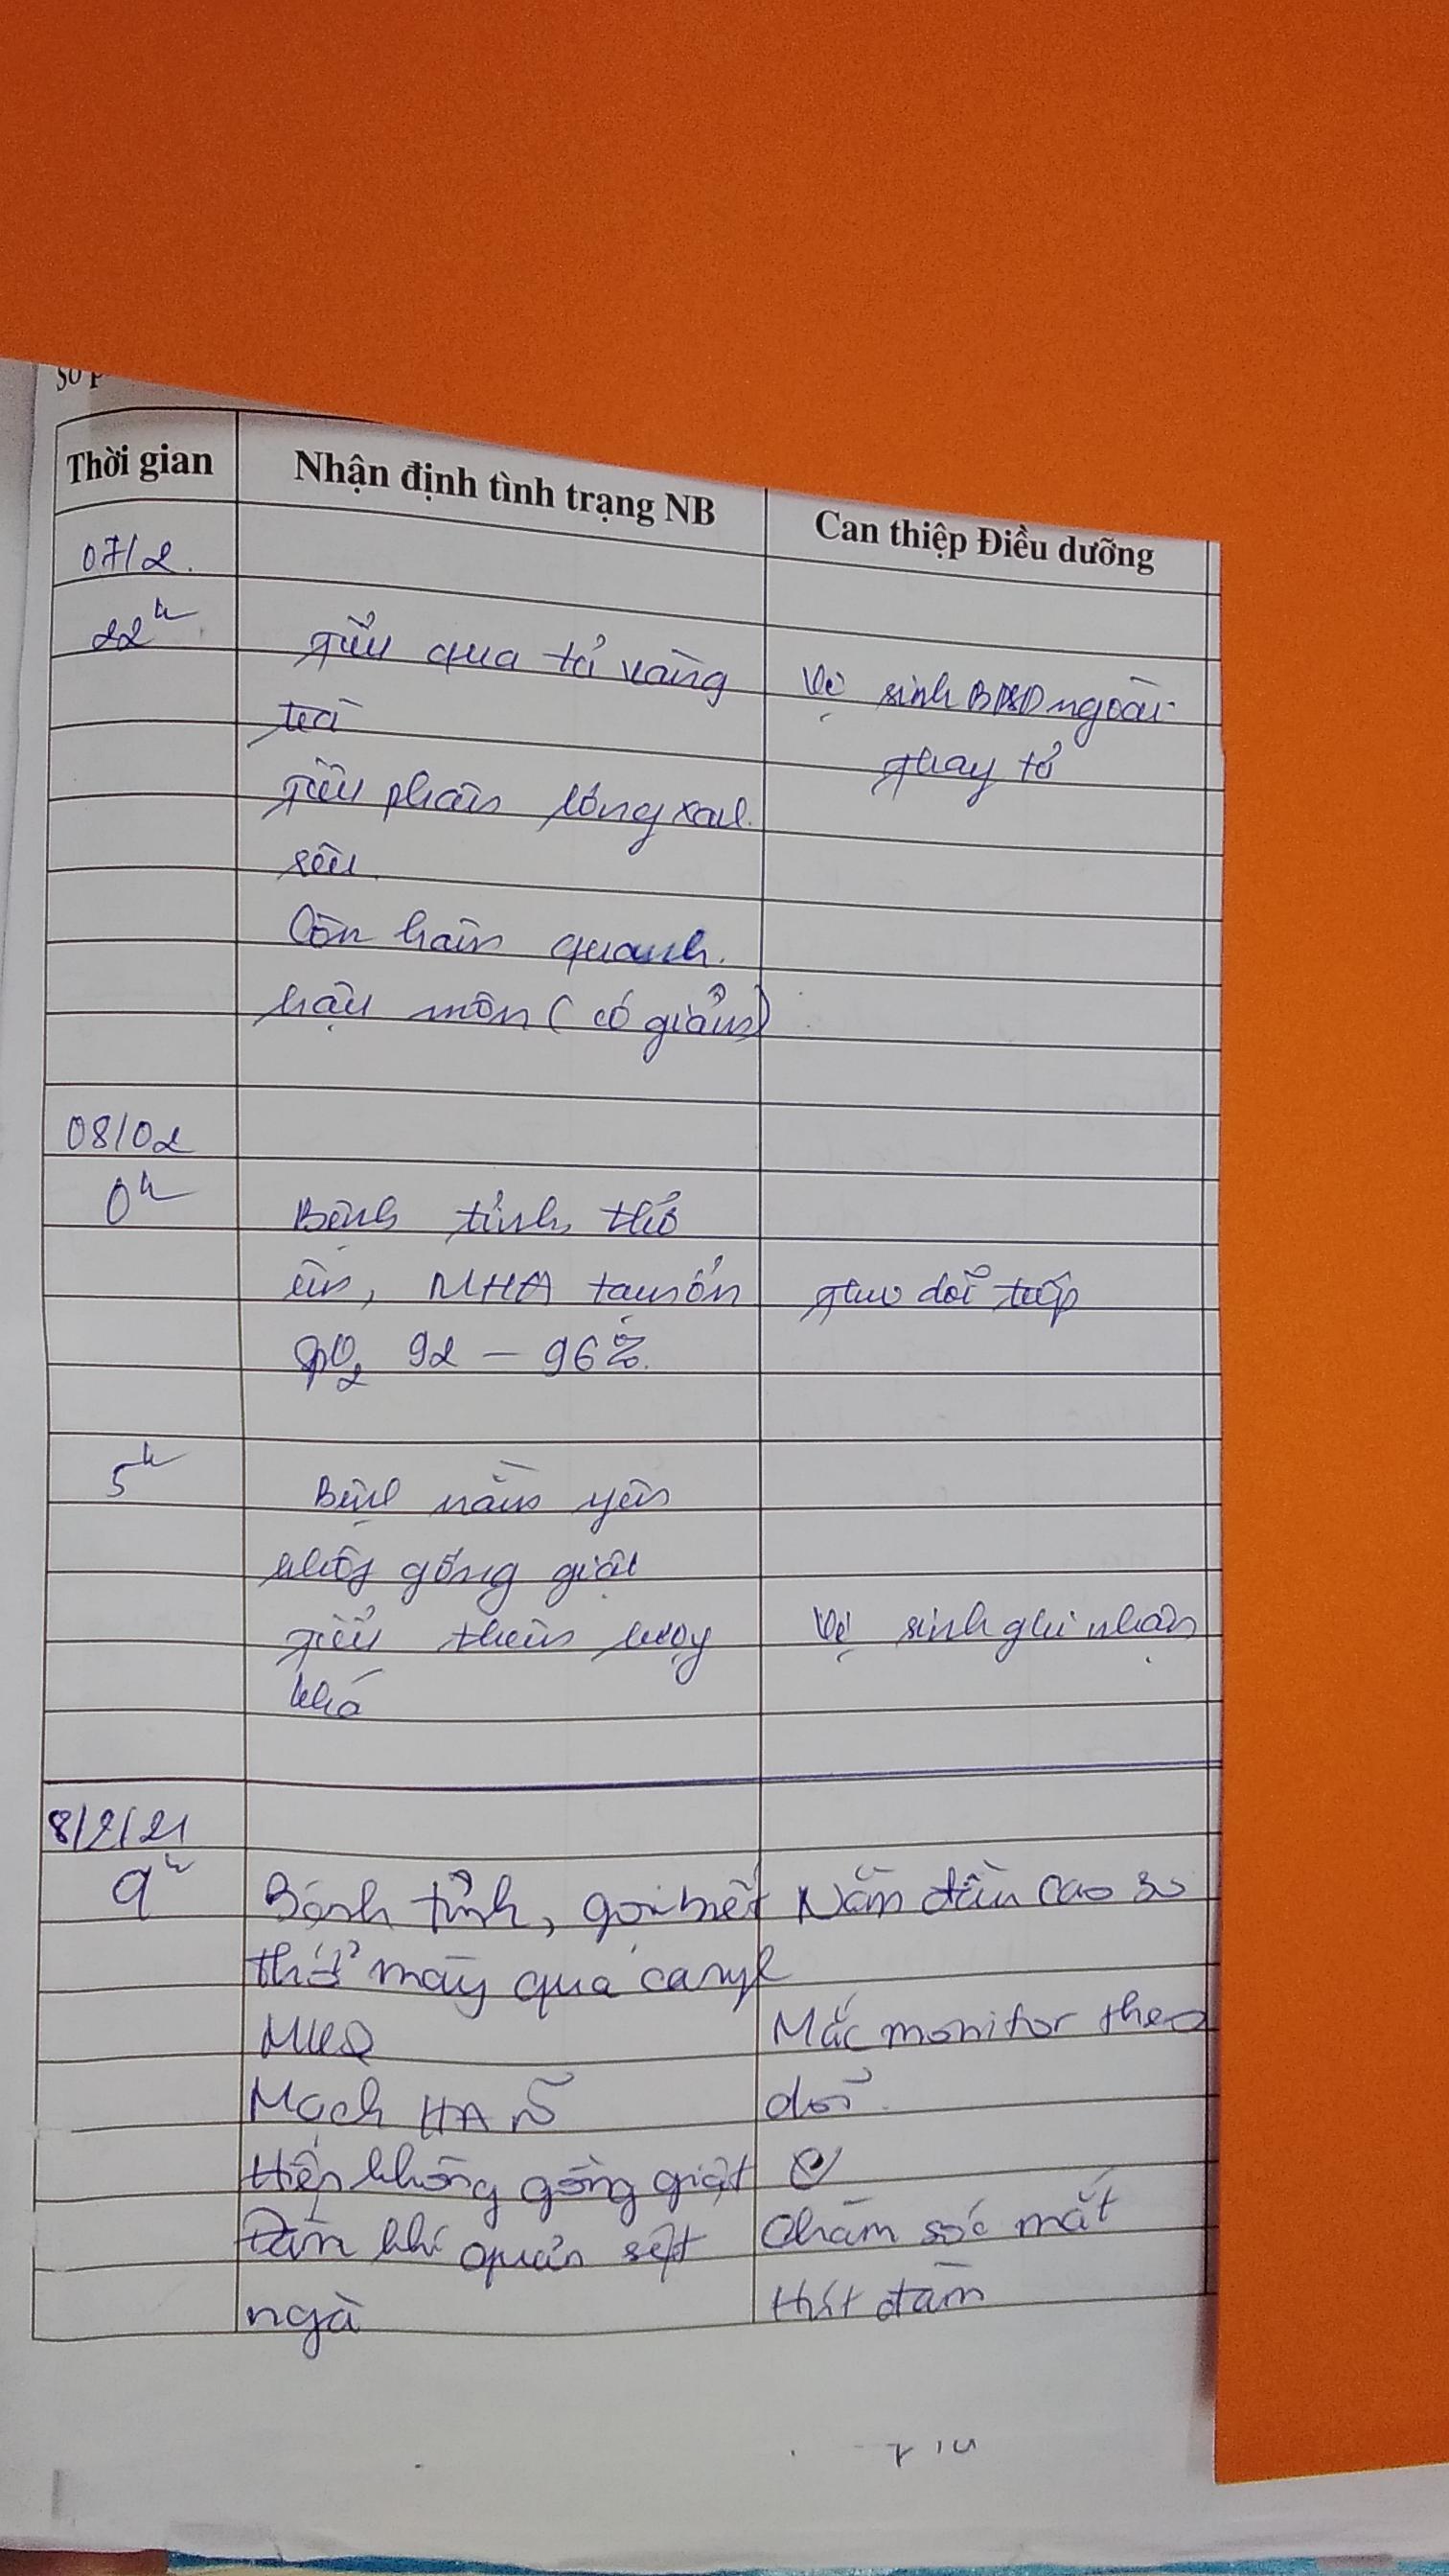 Thời gian Nhận định tình trạng NB Can thiệp Điều dưỡng
07/2.
22h tiểu qua tả vàng Vệ sinh ngoài
trà thay tả
tiêu phân lỏng xanh
rêu.
Còn hăm quanh.
hậu môn (có giảm)
08/02
0h Bệnh tỉnh, thở
êm, MHA tạm ổn theo dõi tiếp
SpO2 92 - 96%.
5h Bệnh nằm yên
không gồng giật
tiểu thêm lượng Vệ sinh ghi nhận
khá
8/2/21
9h Bệnh tỉnh, gọi biết Nằm đầu cao 30
thở máy qua canyl
MKQ Mắc monitor theo
Mạch HA dõi
Hiện không gồng giật
Đàm khí quản sệt Chăm sóc mắt
ngà Hút đàm